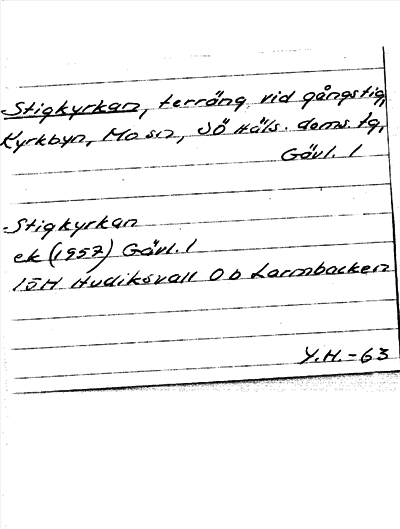 Stigkyrkan, terräng vid gångstig,
Kyrkbyn, Mo sn, SÖ Häls. doms. tg,
Gävl. l
Stigkyrkan
ek (1957) Gävl. l
10H Hudiksvall Ob Larmbacken
Y.H. -63